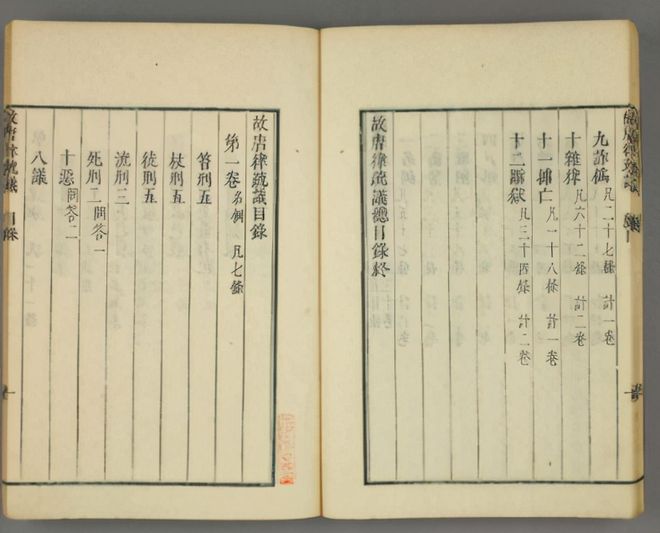 九詐僞凡二十七條 計一卷
十雜律凡六十二條 計二卷
十一捕亡凡一十八條 計一卷
十二斷獄凡三十四條 計二卷
故唐律疏議總目錄終
故唐律疏議目錄
第一卷名例 凡七條
笞刑五
杖刑五
徒刑五
流刑三
死刑二問答一
十惡問答二
八議
故唐律疏議 目錄